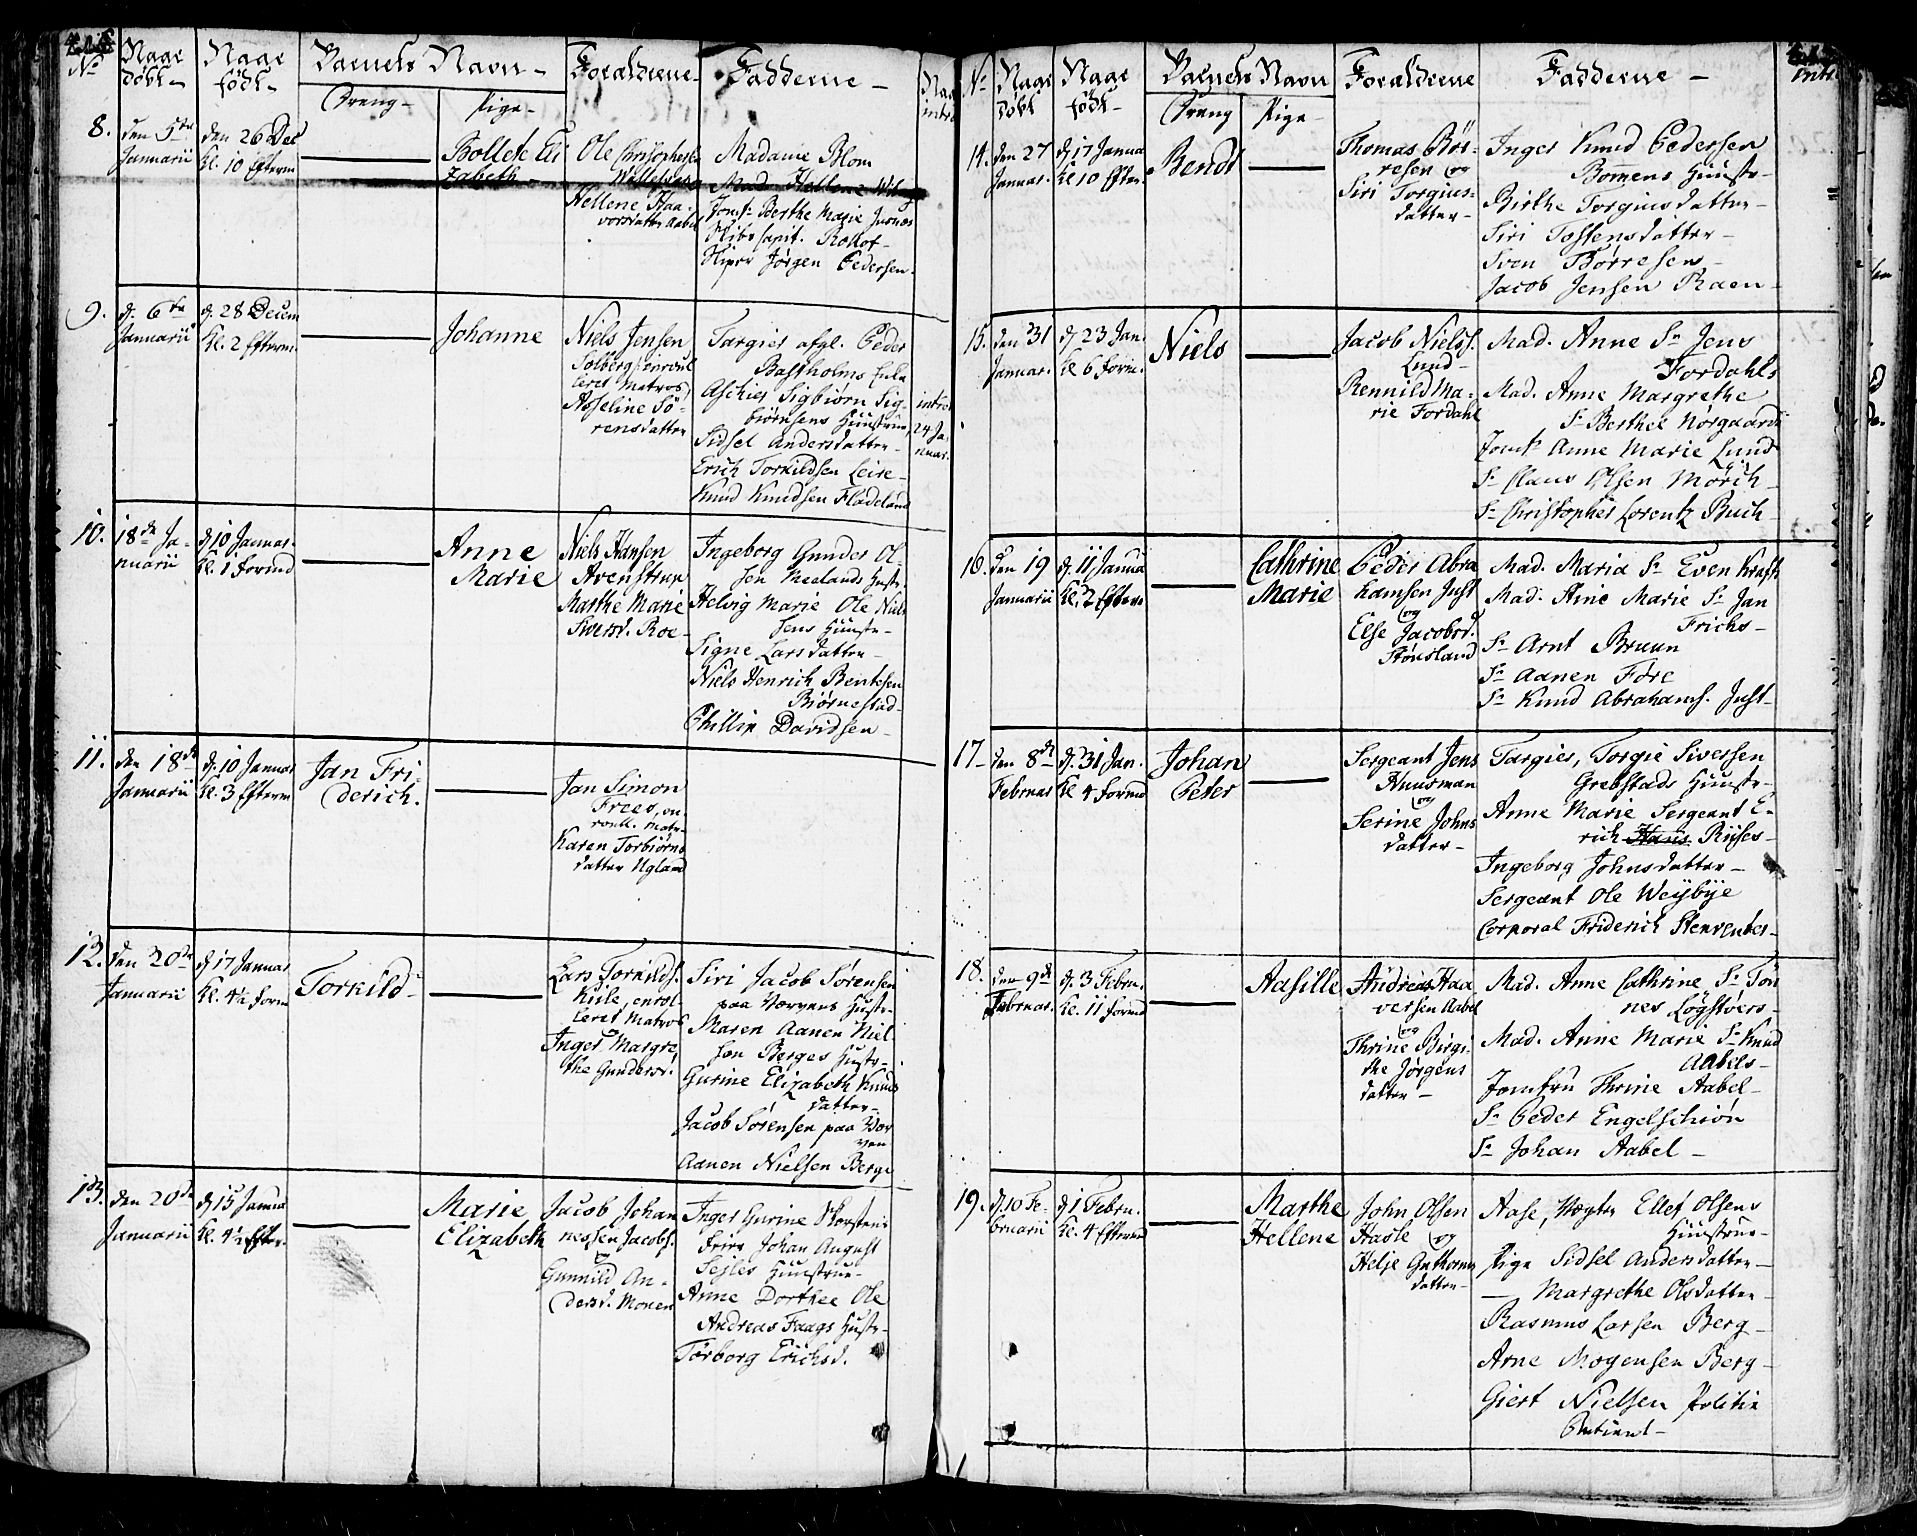 No
Naar
døbt
Naar
født
Barnets Navn
Dreng
Pige
Forældrene
Fadderne
8.
den 5te
Januarii
den 26 Dec
Kl. 10 Efterm
Bollete Eli
zabeth
Ole Christophers
Hellene Haa-
vorsdatter Aabel
Madame Blom
Mad. Hellene
Jomfr Berthe Marie
Skibscapit.
Skipr Jørgen Pedersen
9.
d. 6te
Januarii
d. 28 Decem
Kl. 2 Efterm.
Johanne
Niels Jensen
Solberg, enroul
leret Matros
Asseline Sö-
rensdatter
Targier afgl. Peder
Bastholms Enke
Aschier Sigbiørn Sig-
biørnsens Huustrue
Sidsel Andersdatter
Erich Torkildsen Leire
Knud Knudsen Flådeland
intro
24 Ja-
nuar.
10.
18de Ja-
nuarii
d. 10 Januar.
Kl. 1 Formd
Anne
Marie
Niels Hansen
Avenstrup
Marthe Marie
Siversd. Roe
Ingeborg Gunder Ol-
sen Mealands Hustr
Helvig Marie Ole Niel
sens Huustr
Signe Larsdatter
Niels Henrich Bentsen
Biørnestad
Phillip Davidsen
11.
den 18de
Januarii
d. 10 Januar
Kl. 3 Efterm
Jan Fri-
derich.
Jan Simon
Frees, en
roull. Matr
Karen Torbiørns
datter Ugland
12.
den 20de
Januarii
d. 17 Januar
Kl. 4½ Form
Torkild
Lars Torkilds.
Kiile, enrol
leret Matros
Inger Margre
the Gundersd.
Siri Jacob Sørensen
paa Værvens Hustr
Maren Aanen Niel-
sen Berges Hustr
Gurine Elizabeth Knuds
datter
Jacob Sørensen paa Vær
ven
Aanen Nielsen Berge
13.
den 20de
Januarii
d. 15 Janua
Kl. 4½ Efter.
Marie
Elizabeth
Jacob Johan
nessen Jacobs.
og
Gunnild An-
dersd. Monen
Inger Gurine
Johan August
Sejles Huustrue
Anne Dorthee Ole
Andreas Faags Hustr
Torborg Erichsd.
No
Naar
døbt
Naar
født
Barnets Navn
Dreng
Pige
Forældrene
Fadderne
14.
den 27
Januar.
d. 17 Janua
Kl 10 Efter.
Bendt
Thomas Bör-
resen og
Siri Torgius-
datter
Inger Knud Pedersen
Bomens Huustr
Birthe Torgiusdatter
Siri Tostensdatter
Sven Børresen
Jacob Jensen Raen
15.
den 31
Januar.
d. 23 Jan.
Kl 6 Form.
Niels
Jacob Niels.
Lund
Rennild Ma-
rie Fordahl
Mad. Anne Sr Jens
Fordahls
Mad. Anne Margrethe
Sr Berthel Nørgaards
Jomfr Anne Marie Lund
Sr Claus Olsen Mörch
Sr Christopher Lorentz Buch
16.
den 19
Januarii
d. 11 Janua
Kl. 2 Efterm
Cathrine
Marie
Peder Abra
hamsen Just
og
Else Jacobsd.
Stönsland
Mad. Maria Sr Even Kraft
Mad. Ane Marie Sr Jan
Frichs
Sr Arnt Bruun
Sr Aanen Före
Sr Knud Abrahams. Just
17
den 8de
Februar
d. 31 Jan.
Kl 4 Formd
Johan
Peter
Sergeant Jens
Huusman
og
Serine Johns
datter
Targier, Torgie Siversen
Grebstads Huustr
Anne Marie Sergeant E-
rich Hans Riises
Ingeborg Johnsdatter
Sergeant Ole Weybye
Corporal Friderich
18.
den 9de
Februar.
d. 3 Febru.
Kl. 11 Formd
Aasille
Andreas Haa
versen Aabel
og
Thrine Birgi-
the Jörgens
datter
Mad. Anne Cathrine Sr Tön
nes Lögstvers
Mad. Anne Marie Sr Knud
Aabels
Jomfru Thrine Aabel
Sr Peder Engelschiøn
Sr Johan Aabel
19.
d. 10 Fe-
bruarii
d. 1 Febru.
Kl. 4 Efterm
Marthe
Hellene
John Olsen
Hasle og
Helje Guthorms
datter
Aase, Vægter Ellef Olsens
Huustrue
Pige Sidsel Andersdatter
— Margrethe Olsdatter
Rasmus Larsen Berg
Arne Mogensen Berg
Giert Nielsen Politie
Betient